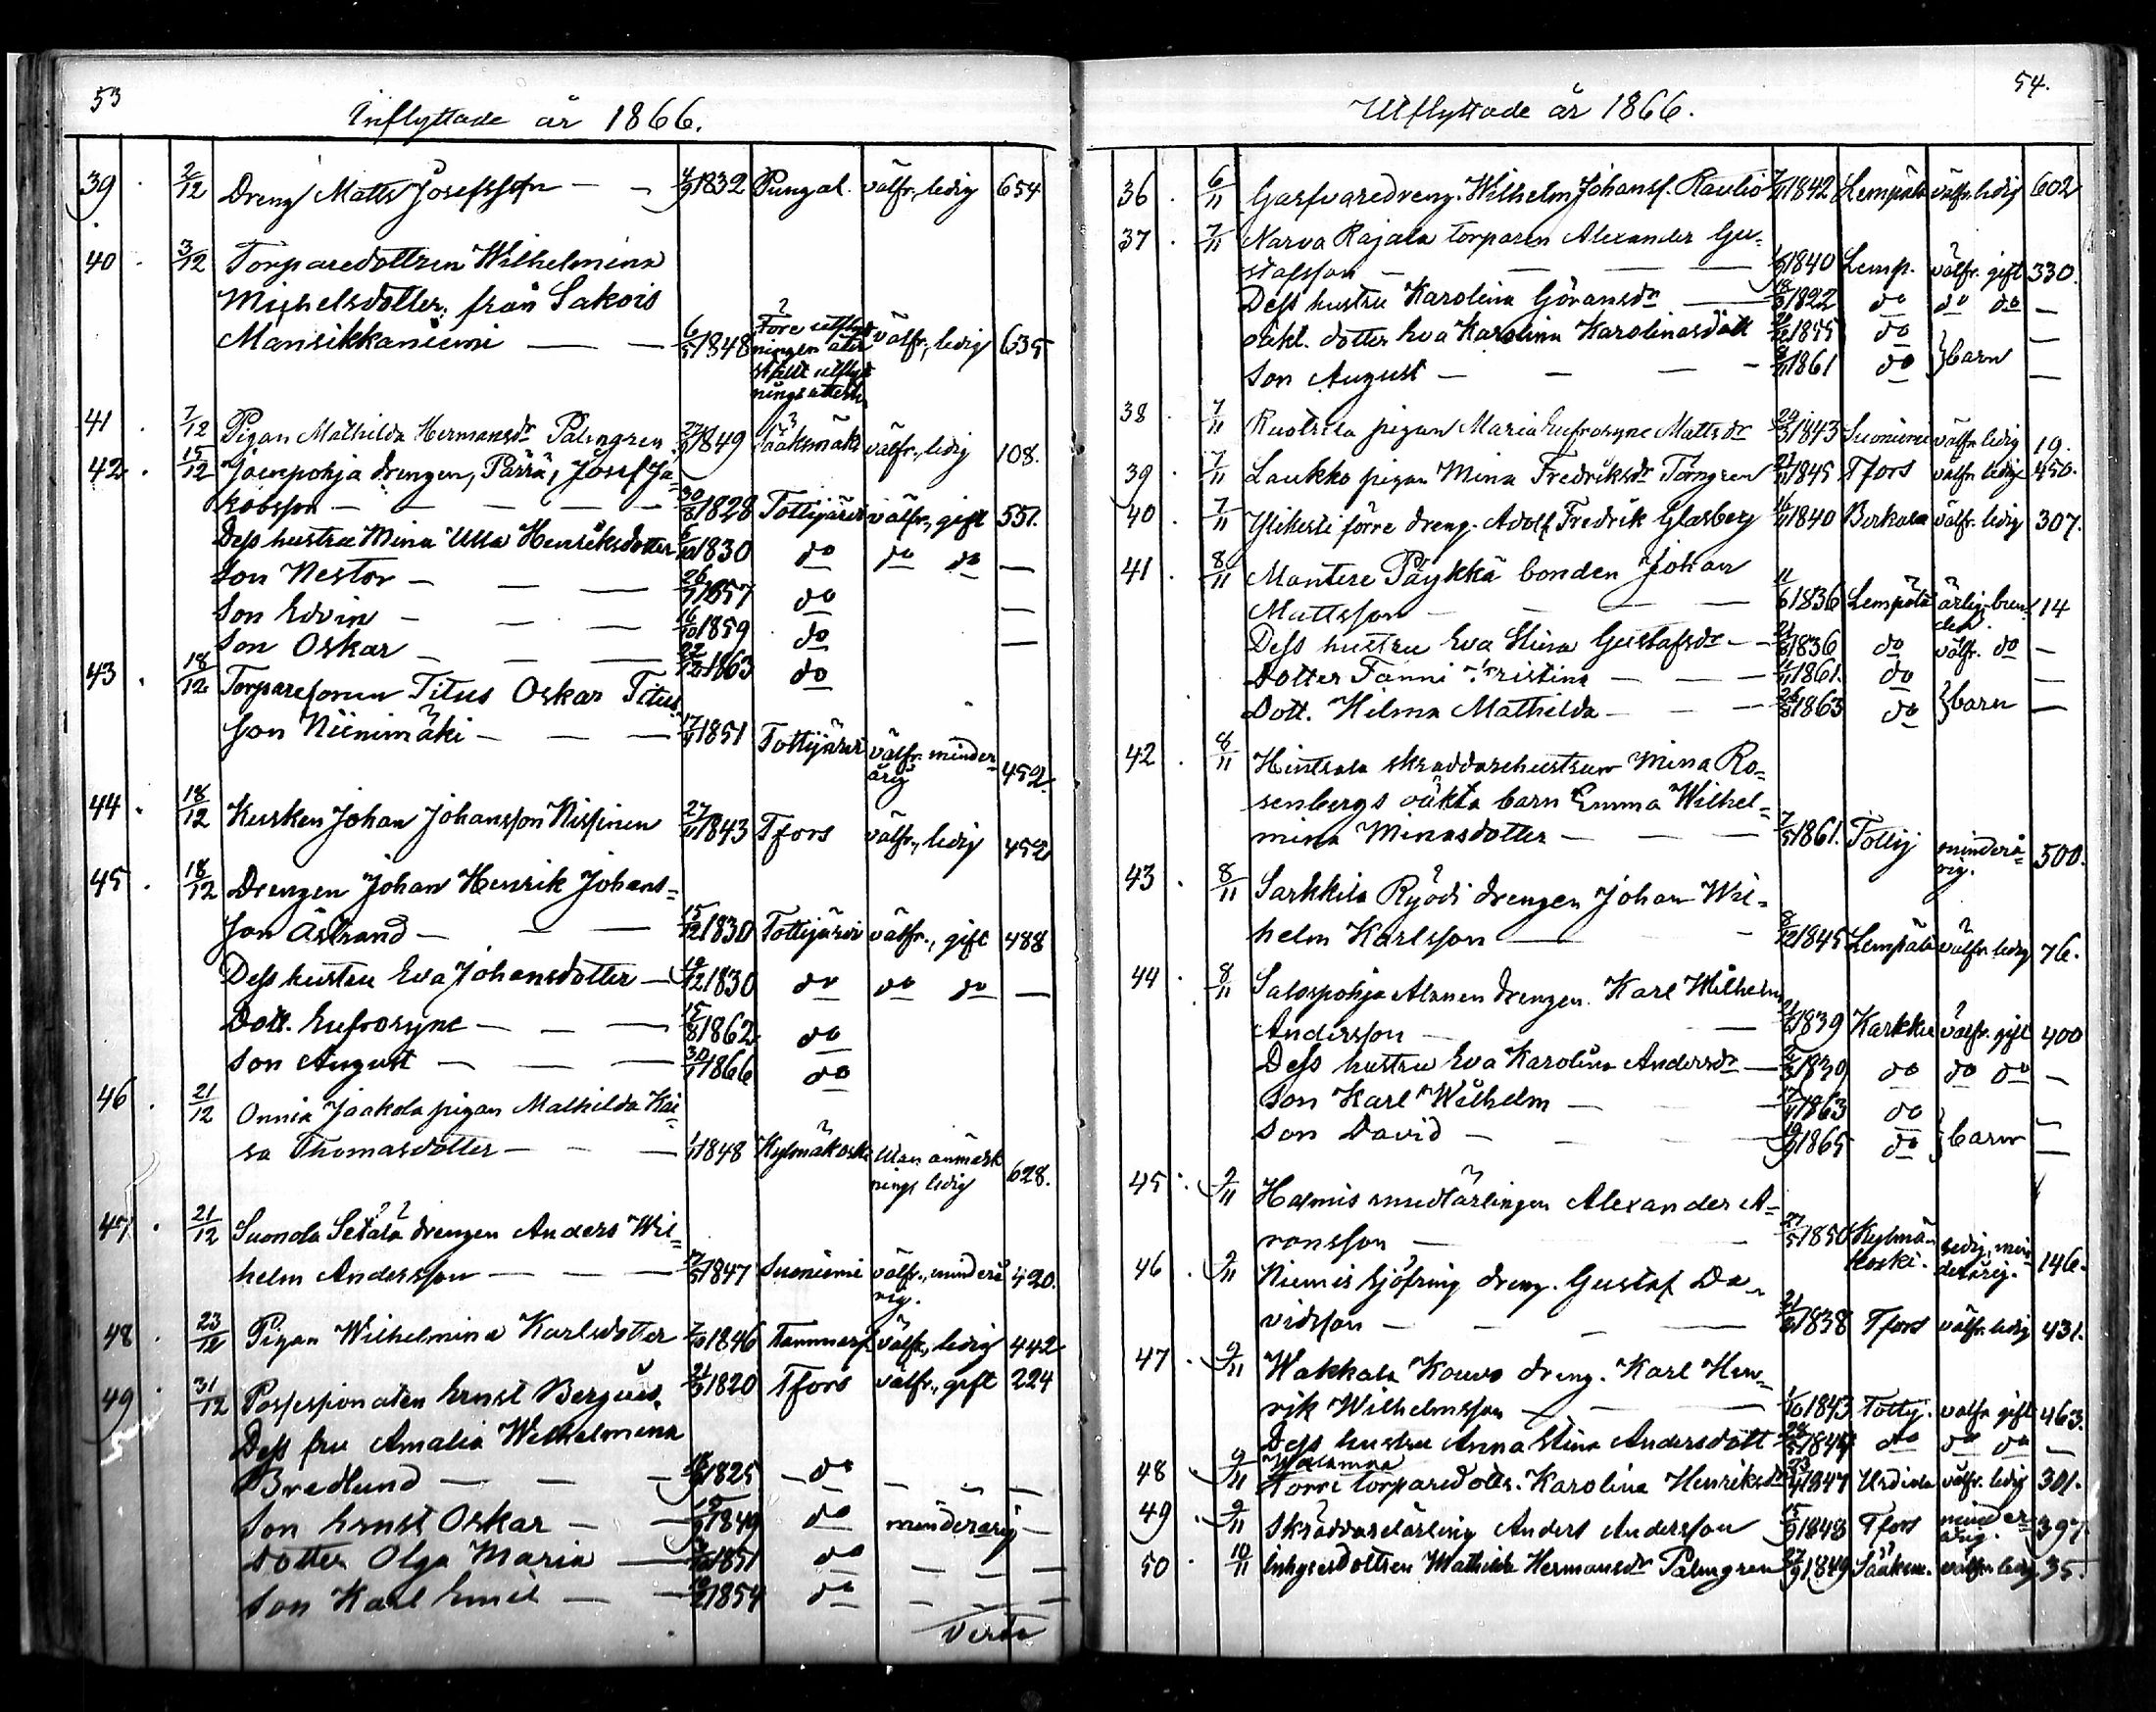 53
Inflyttade år 1866.
39 . 2/12 Dreng Matts Josefsson — — 4/9 1832 Pungal. välfr., ledig 654
40 . 3/12 Torparedottren Wilhelmina
Michelsdotter, från Sakois
Mansikkaniemi — — 6/5 1848 Före utflytt
ningen åter
stält utflytt
ningsattest välfr., ledig 635
41 . 7/12 Pigan Mathilda Hermansdr Palmgren 27/9 1849 Sääksmäki välfr., ledig 108.
42 . 15/12 Jaenpohja drengen, Pärrä, Josef Ja-
kobsson — — — — 30/8 1828 Tottijärvi välfr., gift 551.
Dess hustru Mina Ulla Henriksdotter 5/10 1830 do do do —
Son Nestor — — — 26/2 1857 do —
Son Edvin — — — 16/10 1859 do —
Son Oskar — — — 22/12 1863 do
43 . 18/12 Torparesonen Titus Oskar Titus-
son Niinimäki — — — 17/9 1851 Tottijärvi välfr. minder-
årig 452.
44 . 18/12 Kusken Johan Johansson Nissinen 27/11 1843 Tfors välfr., ledig 452
45 . 18/12 Drengen Johan Henrik Johans-
son Åstrand — — — 15/12 1830 Tottijärvi välfr., gift 488
Dess hustru Eva Johansdotter — 19/12 1830 do do do —
Dott. Eufrosyne — — — 15/8 1862 do
Son August — — — 30/1 1866 do
46 . 21/12 Onnia Jaakola pigan Mathilda Kai-
sa Thomasdotter — — — 1/1 1848 Kylmäkoski utan anmärk
nings ledig 628.
47 . 21/12 Suonola Setälä drengen Anders Wil-
helm Andersson — — — 17/5 1847 Suoniemi välfr., minderå
rig. 420.
48 . 23/12 Pigan Wilhelmina Karlsdotter 7/10 1846 Tammerf. välfr., ledig 442
49 . 31/12 Possessionaten Ernst Bergius. 21/3 1820 Tfors välfr., gift 224
Dess fru Amalia Wilhelmina
Bredlund — — — 1825 — do — — —
Son Ernst Oskar — — 1849 do minderårig —
Dotter Olga Maria — 1851 do — — —
Son Karl Emil — — 1854 do — — —
Verte
54.
Utflyttade år 1866.
36 . 6/11 Garfvaredreng. Wilhelm Johanss. Raulio 1842 Lempäla välfr. ledig 602
37 . 7/11 Narva Rajala torparen Alexander Gu-
stafsson — — — — 1840 Lemp. välfr. gift 330.
Dess hustru Karolina Göransdr — 18/3 1822 do do do —
oäkt. dotter Eva Karolina Karolinasdott 1845 do —
Son August — — — — 1861 do } barn —
38 . 7/11 Ruotsila pigan Maria Eufrosyne Mattsdr 29/3 1843 Suoniemi välfr. ledig 19.
39 . 7/11 Laukko pigan Mina Fredriksdr Törngren 1845 Tfors välfr. ledig 450.
40 . 7/11 Ylikesti förre dreng. Adolf Fredrik Glasberg 1840 Birkala välfr. ledig 307.
41 . 8/11 Mantere Päykkä bonden Johan
Mattsson — — — 11/6 1836 Lempäla ärlig. 14
Dess hustru Eva Stina Gustafsdr — 21/8 1836 do välfr. do —
Dotter Fanni Kristina — — — 1861. do —
Dott. Hilma Mathilda — — — 26/8 1863 do } barn —
42 . 8/11 Hintsala skräddarehustrun Mina Ro-
senbergs oäkta barn Emma Wilhel-
mina Minasdotter — — — 7/5 1861. Tottij minderå-
rig. 500.
43 . 8/11 Sarkkila Ryödi drengen Johan Wil-
helm Karlsson — — 8/12 1845 Lempäla välfr. ledig 76.
44 . 8/11 Salospohja Alanen drengen. Karl Wilhelm
Andersson — — 1839 Karkku välfr. gift 400
Dess hustru Eva Karolina Andersdr — 1839 do do do —
Son Karl Wilhelm — — 1863 do —
Son David — — — 19/9 1865 do } barn —
45 . 9/11 Halmis smedlärlingen Alexander A-
ronsson — — 27/5 1850 Kylmä-
koski. ledig, min
derårig. 146.
46 . 9/11 Niemis hjöfring dreng. Gustaf Da-
vidsson — — — — 21/6 1838 Tfors välfr. ledig 431.
47 . 9/11 Wakkala Kouvo dreng. Karl Hen-
rik Wilhelmsson — — — 1/10 1843 Tottij. välfr. gift 463.
Dess hustru Anna Stina Andersdott 1844 do do do —
48 . 9/11 Korri torparedottr. Karolina Henriksdr 1847 Urdiala välfr. ledig 301.
49 . 9/11 Skräddarelärling Anders Andersson 15/9 1848 Tfors minder-
årig. 397
50 . 10/11 Inhysesdottren Mathilda Hermansdr Palmgren 27/9 1849 Sääksm. välfr. ledig. 35.